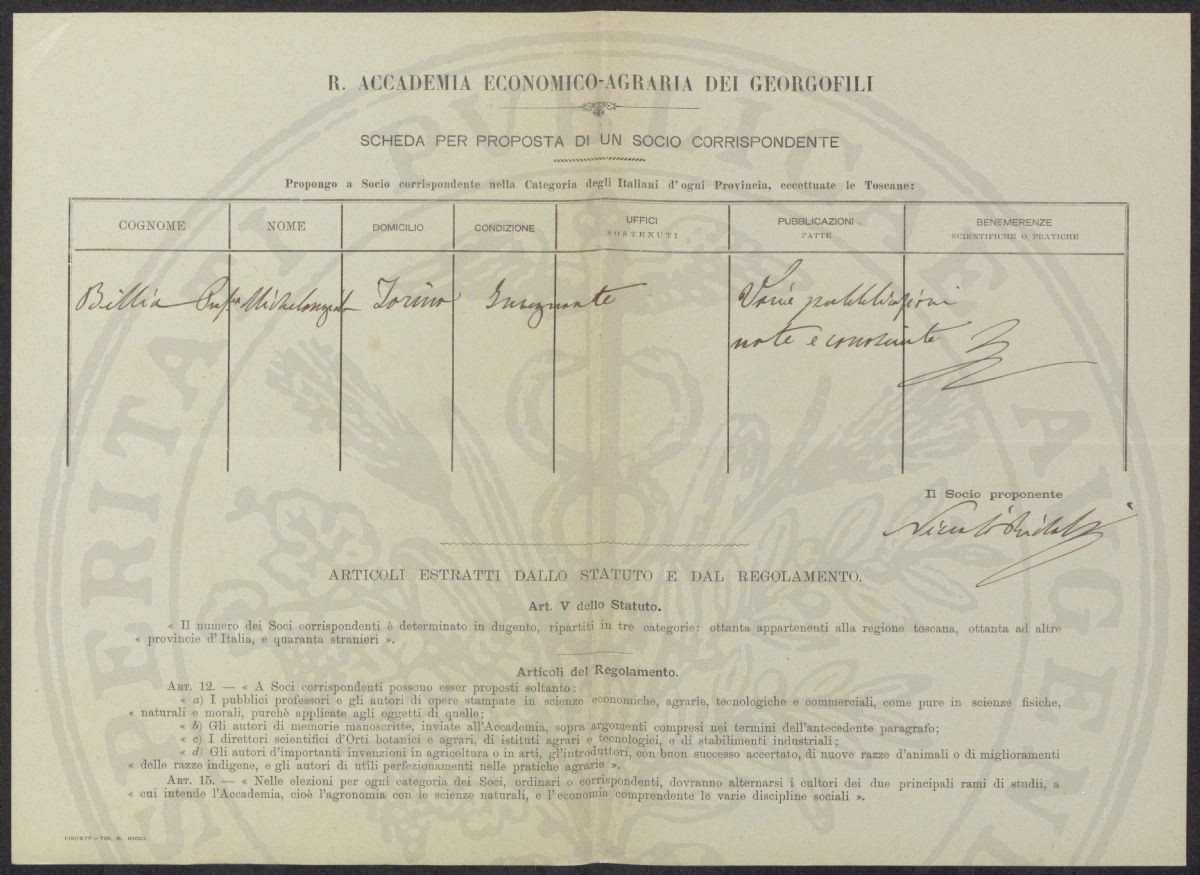 R. ACCADEMIA ECONOMICO-AGRARIA DEI GEORGOFILI
SCHEDA PER PROPOSTA DI UN SOCIO CORRISPONDENTE
Propongo a Socio corrispondente nella Categoria degli Italiani d'ogni Provincia, eccettuate le Toscane:
COGNOME NOME DOMICILIO CONDIZIONE UFFICI SOSTENUTI PUBBLICAZIONI FATTE BENEMERENZE SCIENTIFICHE O PRATICHE
Billia Michelangelo Torino Insegnante Varie pubblicazioni
note e conosciute
Il Socio proponente
ARTICOLI ESTRATTI DALLO STATUTO E DAL REGOLAMENTO.
Art. V dello Statuto.
« Il numero dei Soci corrispondenti è determinato in dugento, ripartiti in tre categorie: ottanta appartenenti alla regione toscana, ottanta ad altre
« provincie d'Italia, e quaranta stranieri ».
Articoli del Regolamento.
ART. 12. — « A Soci corrispondenti possono esser proposti soltanto:
« a) I pubblici professori e gli autori di opere stampate in scienze economiche, agrarie, tecnologiche e commerciali, come pure in scienze fisiche,
« naturali e morali, purchè applicate agli oggetti di quelle;
« b) Gli autori di memorie manoscritte, inviate all'Accademia, sopra argomenti compresi nei termini dell'antecedente paragrafo;
« c) I direttori scientifici d'Orti botanici e agrari, di istituti agrari e tecnologici, e di stabilimenti industriali;
« d) Gli autori d'importanti invenzioni in agricoltura o in arti, gl'introduttori, con buon successo accertato, di nuove razze d'animali o di miglioramenti
« delle razze indigene, e gli autori di utili perfezionamenti nelle pratiche agrarie ».
ART. 15. — « Nelle elezioni per ogni categoria dei Soci, ordinari o corrispondenti, dovranno alternarsi i cultori dei due principali rami di studii, a
« cui intende l'Accademia, cioè l'agronomia con le scienze naturali, e l'economia comprendente le varie discipline sociali ».
FIRENZE — TIP. M. RICCI
PROSPERITATI PUBLICAE AUGENDAE